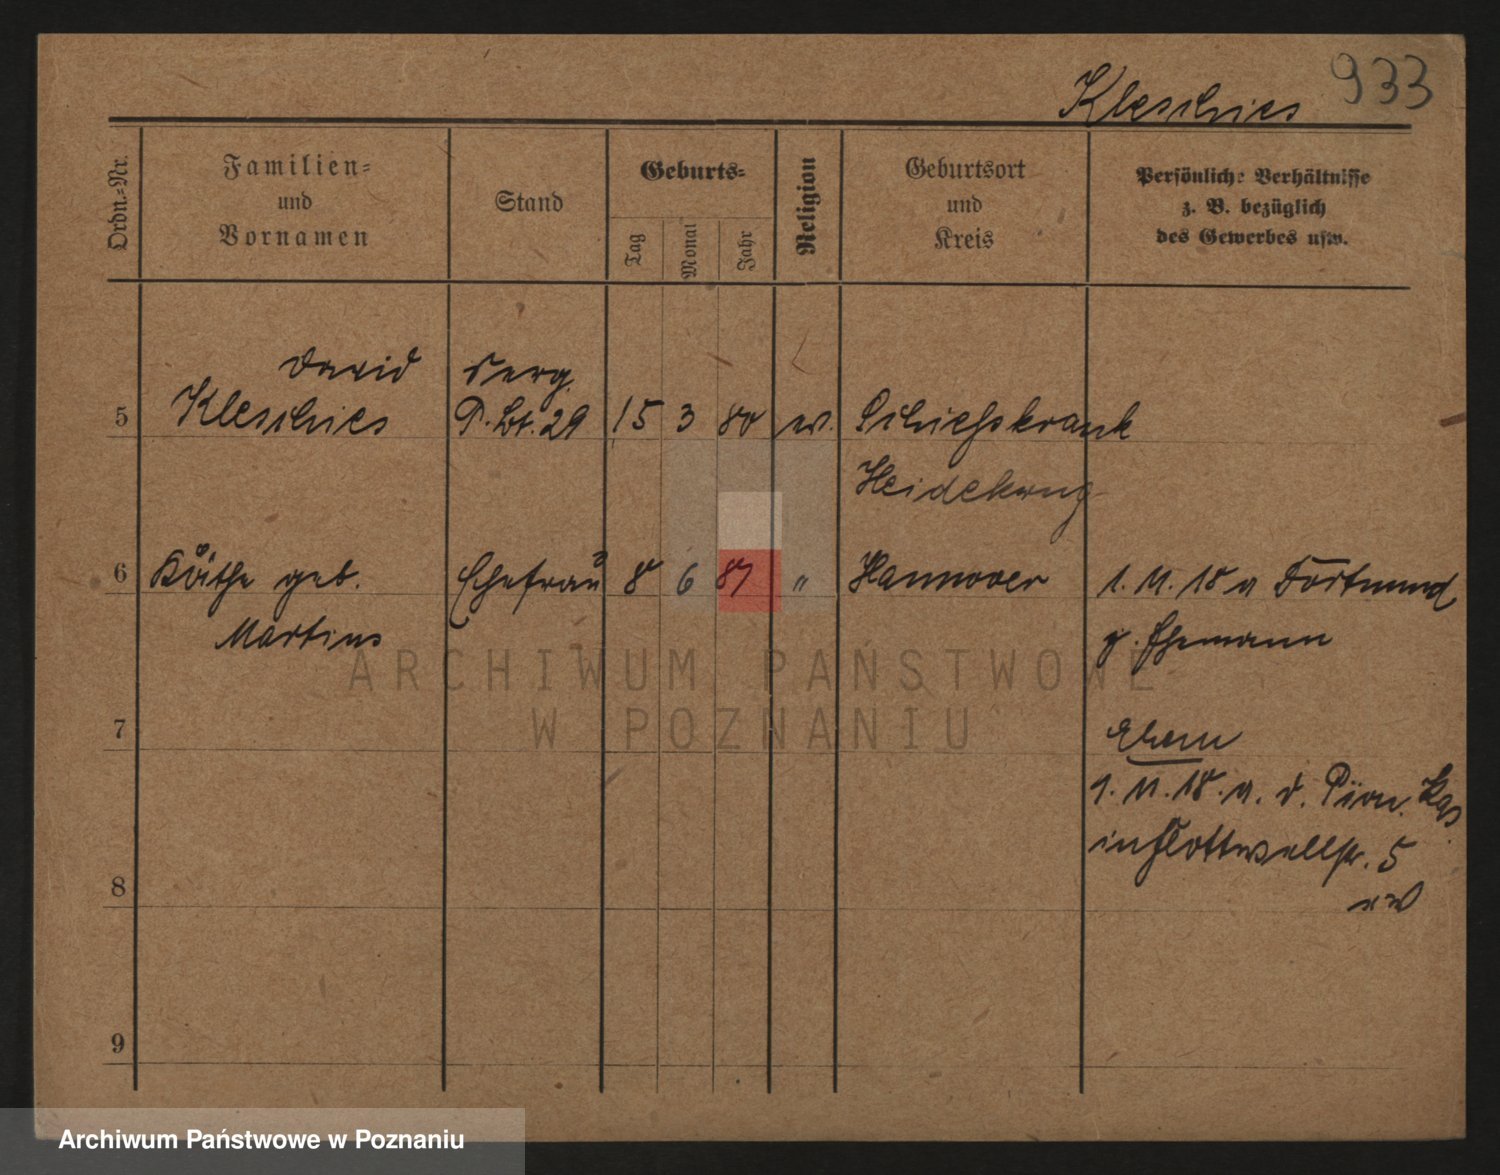 933
Kleschies
Ordn.-Nr.
Familien-
und
Vornamen
Stand
Geburts-
Tag
Monat
Jahr
Religion
Geburtsort
und
Kreis
Persönliche Verhältnisse
z. B. bezüglich
des Gewerbes usw.
David Serg.
5 Kleschies P. Bt. 29 15 3 80 ev.
Heidekrug
6 Käthe geb. Ehefrau 8 6 87 " Hannover 1. 11. 18 a Dortmund
Martins z. Ehemann
ARCHIWUM PAŃSTWOWE
W POZNANIU
7
1. 11. 18. a. d. Pion. Kas
in Flottwellstr. 5
8
9
Archiwum Państwowe w Poznaniu